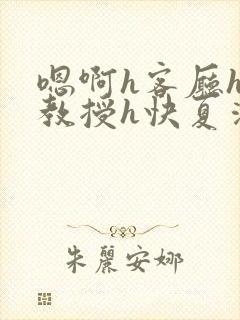 嗯啊h客厅h
教授h快夏
朱麗安娜